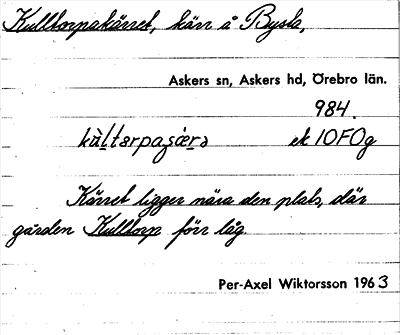 Kulltorpakärret, kärr å Bysta,
Askers sn, Askers hd, Örebro län.
984.
ek 10F0g
Kärret ligger nära den plats, där
gården Kulltorp förr låg.
Per-Axel Wiktorsson 1963